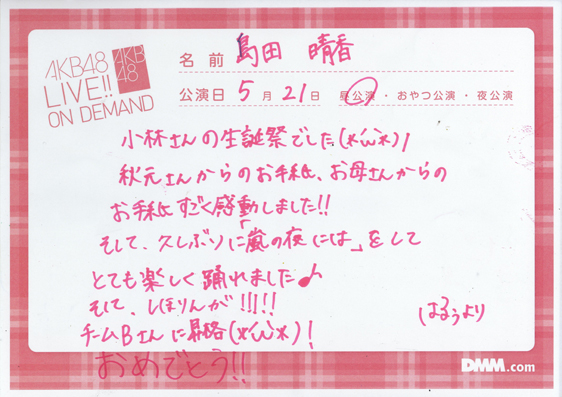 AKB48
LIVE!!
ON DEMAND
AKB
48
名前 島田 晴香
公演日 5月21日 昼公演・おやつ公演・夜公演
小林さんの生誕祭でした(*´ω`*)!
秋元さんからのお手紙、お母さんからの
お手紙すごく感動しました!!
そして、久しぶりに「嵐の夜には」をして
とても楽しく踊れました♪
そして、しほりんが!!!!!
チームBさんに昇格(*´ω`*)!
おめでとう!!
はるぅより
DMM.com